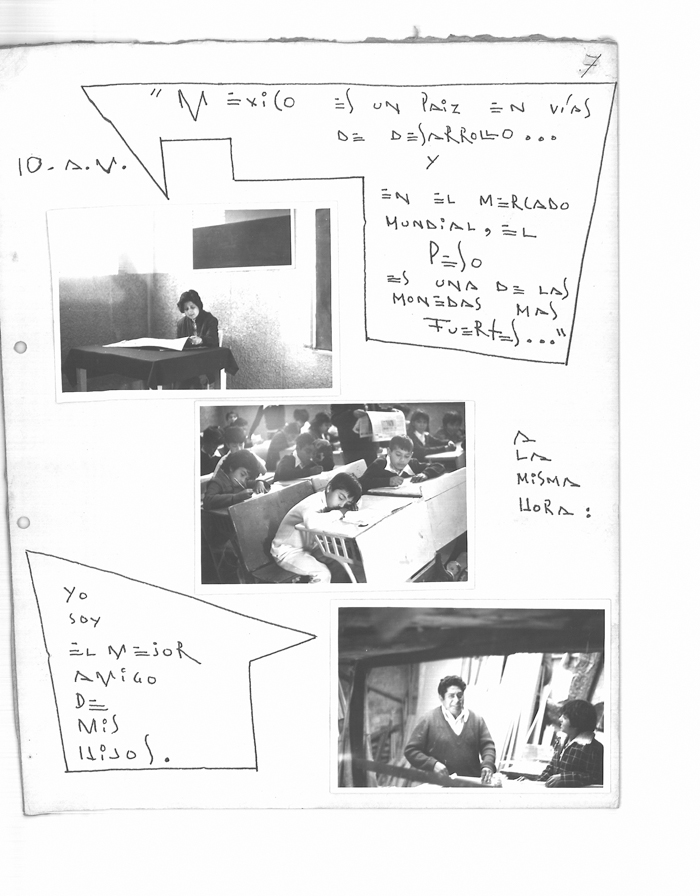 7
"MÉXICO ES UN PAIZ EN VÍAS
DE DESARROLLO...
Y
EN EL MERCADO
MUNDIAL, EL
PESO
ES UNA DE LAS
MONEDAS MAS
FUERTES..."
10. A.M.
A
LA
MISMA
HORA:
YO
SOY
EL MEJOR
AMIGO
DE
MIS
HIJOS.